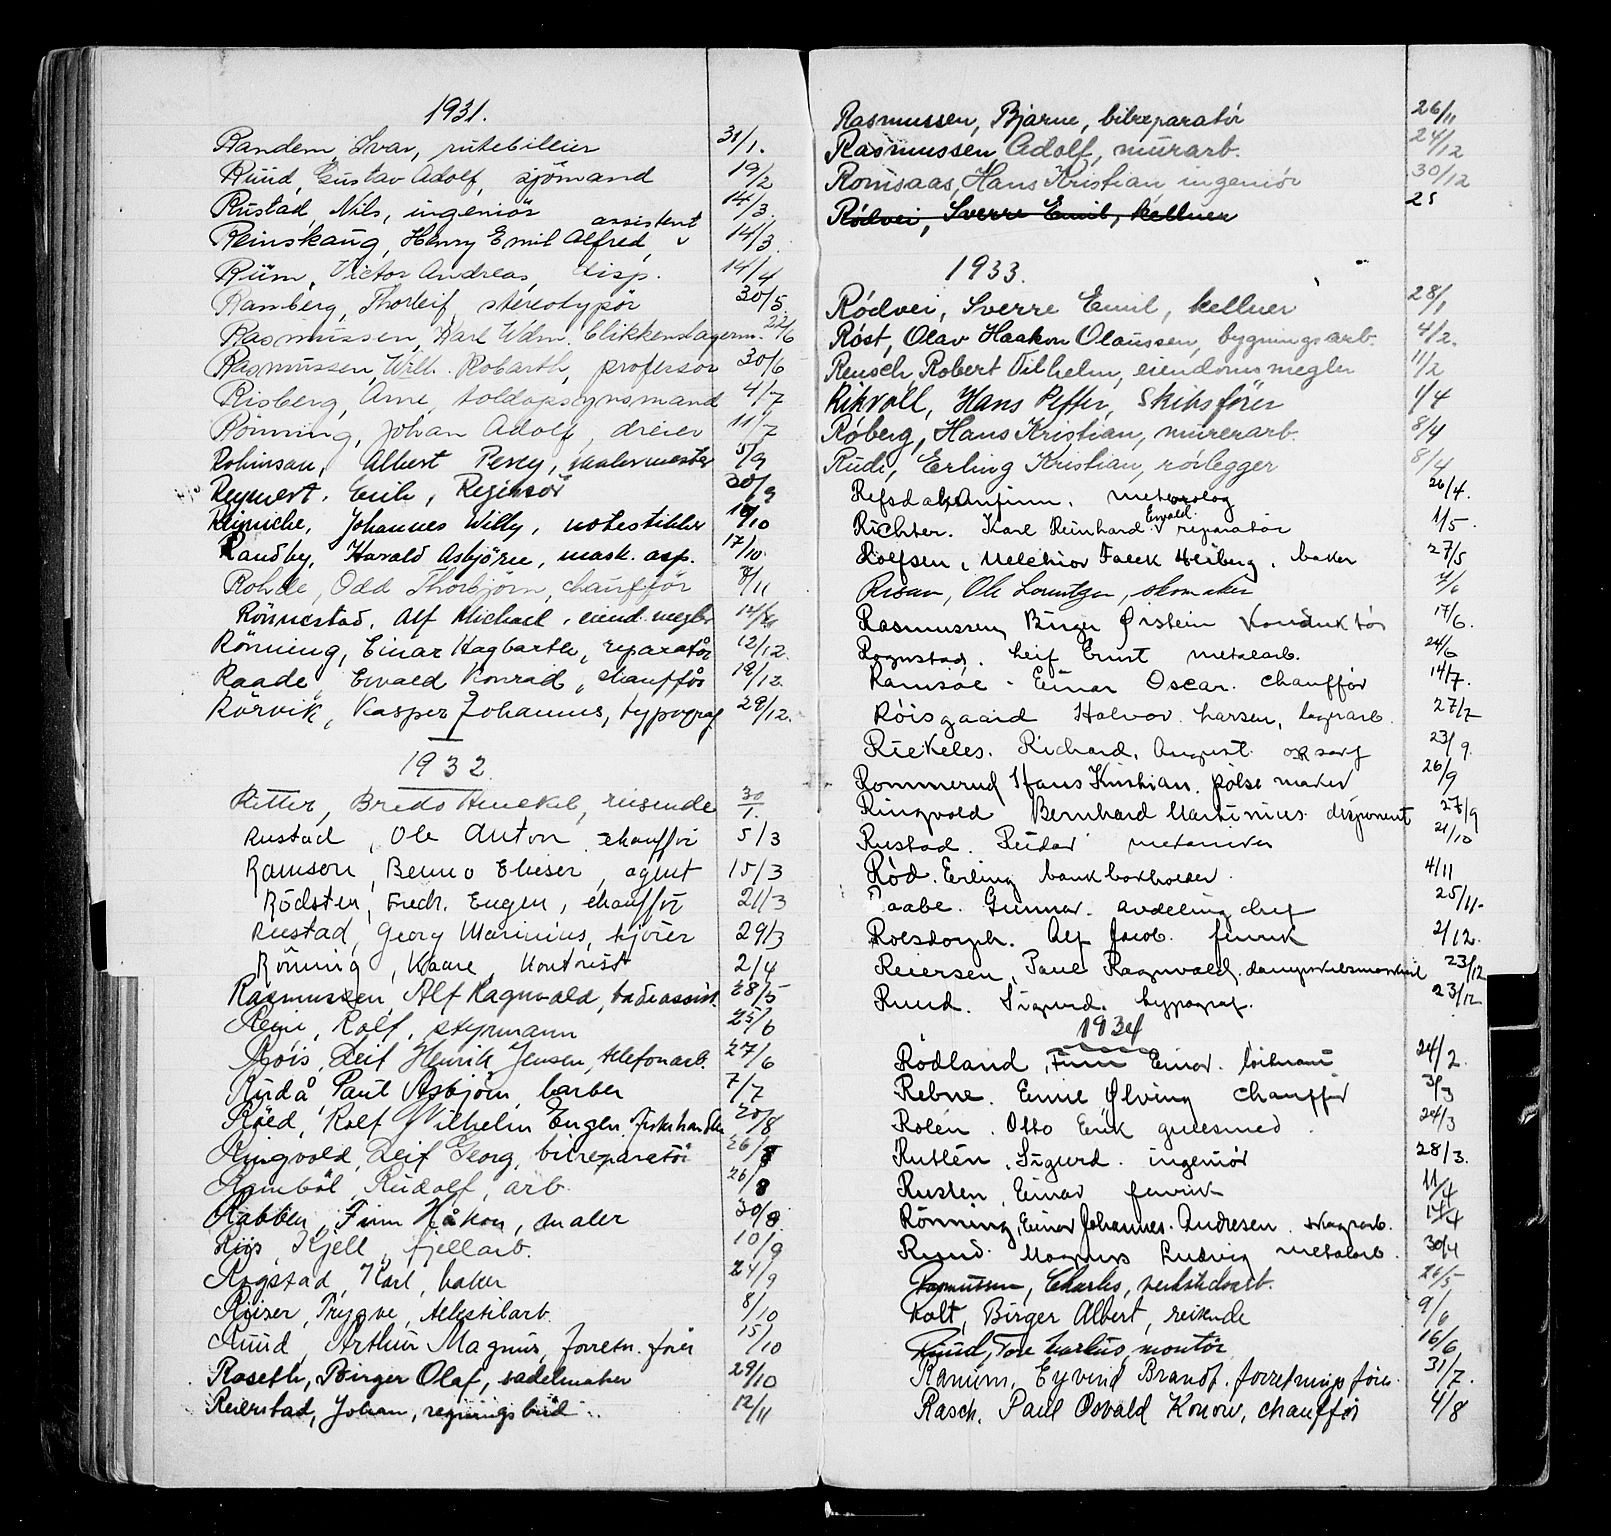 1931.
Randem Ivar, rutebileier 31/1.
Ruud, Gustav Adolf, sjömand 19/2
Rustad, Nils, ingeniör 14/3.
assistent
Reinskaug, Henry Emil Alfred, v 14/3
Rüm, Victor Andreas, disp. 14/4
Ramberg, Thorleif, stereotypör 30/5
Rasmussen, Karl Wdm. blikkenslagerm. 22/6
Rasmussen, Willi. Robarth, professor 30/6
Risberg, Arne, toldopsynsmand 4/7
Ronning, Johan Adolf, dreier 11/7
Robinson, Albert Percy, malermester 5/9
Reymert, Erik, Regissör 30/9
Reiniche, Johannes Willy, notestikker 10/10
Randby, Harald Asbjörn, mask. asp. 17/10.
Rohde, Odd Thorbjörn, chaufför 7/11
Rönnestad, Alf Michael, eiend. megler
Rönning, Einar Hagbarth, reparatör 12/12.
Raade, Ewald Konrad, chaufför 19/12.
Rörvik, Kasper Johannes, typograf 29/12.
1932.
Ritter, Bredo Henckel, reisende 30/1.
Rustad, Ole Anton chaufför 5/3
Ramson, Benno Elieser, agent 15/3
Rödsten, Fredr. Eugen, chaufför 21/3
Rustad, Georg Marinius, kjörer 29/3
Rönning, Kaare, Kontorist 2/4
Rasmussen, Alf Ragnvald, badeassist. 28/5
Reini, Rolf, styrmann 25/6
Röis, Leif Henrik Jensen, telefonarb. 27/6
Rudå Paul Asbjörn, barber 7/7
Röed, Rolf Wilhelm Eugen, fiskehandler 20/8
Ringvold, Leif Georg, bilreparatör 26/8
Ramböl, Rudolf, arb. 26/8
Rabben, Finn Håkon, maler 30/8
Riis, Kjell, fjellarb. 10/9
Rogstad, Karl, baker 24/9
Riiser, Trygve, tekstilarb. 8/10
Ruud Arthur Magnus, forretn. förer 15/10
Roseth, Birger Olaf, sadelmaker 29/10
Reierstad, Johan, regningsbud 12/11
Rasmussen, Bjarne, bilreparatör 26/11
Rasmussen, Adolf, murarb. 24/12
Romsaas, Hans Kristian ingeniör 30/12
Rödvei, Sverre Emil, kellner 28
1933.
Rödvei, Sverre Emil, kellner 28/1
Röst, Olav Haakon Olaussen, bygningsarb. 4/2.
Reusch, Robert Vilhelm, eiendomsmegler 11/2
Rikvoll, Hans Petter, Skibsförer 1/4
Röberg, Hans Kristian, murerarb. 8/4
Rudi, Erling Kristian, rörlegger 8/4
Refsdal, Anfinn. meteorolog 26/4.
Ewald
Richter. Karl Reinhard v reparatör 1/5.
Rolfsen, Melchior Falck Heiberg, baker 27/5
Risan, Ole Lauritzen, skomaker 7/6
Rasmussen, Birger Øistein Konduktör 17/6.
Rognstad. Leif Ernst metalarb. 24/6
Ramsöe - Einar Oscar. chaufför 14/7.
Röisgaard Halvor Larsen, lagerarb. 27/7
Riekeles. Richard, August 23/9.
Rommerud Hans Kristian. pölsemaker 26/9
Ringvold Bernhard Martinius disponent 27/9
Rustad. Reidar mekaniker 21/10
Röd. Erling bankbokholder. 4/11
Raabe. Gunnar. avdelingschef 25/11.
Rolsdorph. Alf Jacob. fenrik 2/12.
Reiersen, Paul Ragnvald. 23/12
Ruud. Sigurd. typograf. 23/12
1934
Rödland, Finn Einar. löitnant 24/2.
Rebne. Emil Ølving chaufför 3/3
Rolén. Otto Erik gullsmed. 24/3
Rutlén, Sigurd. ingeniör 28/3.
Rusten, Einar fenrik 11/4
Rönning, Einar Johannes. Andresen. 14/4
Ruud. Magnus Ludvig metalarb. 30/4
Rasmussen, Charles, verkstedarb. 26/5
Rolt, Birger Albert, reisende 9/6
Ruud, Tore Markus, montör 16/6
Ranum, Eyvind Brandt. forretningsförer 31/7.
Rasch. Paul Osvald Konow, chaufför 4/8